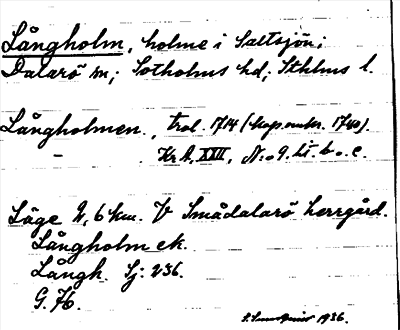 Långholm, holme i Saltsjön;
Dalarö sn; Sotholms hd; Sthlms l.
Långholmen, trol. 1714 (kop. omkr. 1740).
– Kr A. XXII, N:o 9. Lt. b o. c.
Läge 2,6 km. V Smådalarö herrgård.
Långholm ek.
Långh. Sj: 236.
G. H.
1936.